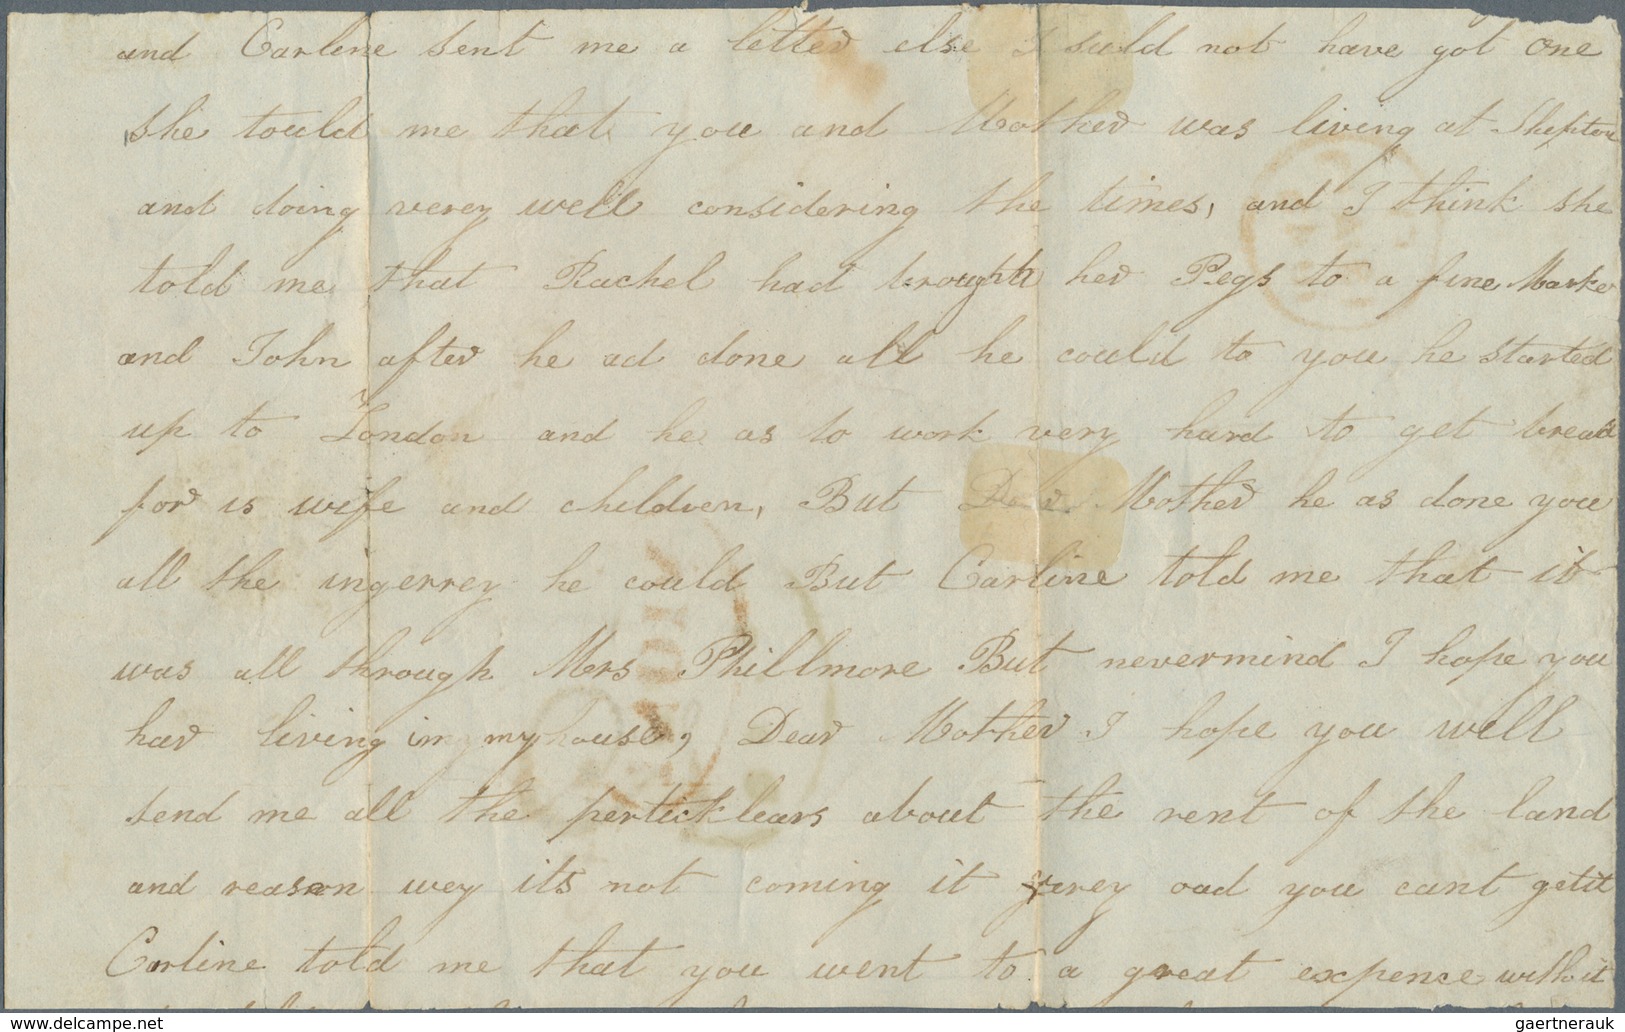 and Carline sent me a letter else I suld not have got one
she tould me that you and Mother was living at Shepton
and doing verey well considering the times, and I think she
told me that Rachel had brought her Pegs to a fine Marke
and John after he ad done all he could to you he started
up to London and he as to work very hard to get bread
for is wife and children, But Dear Mother he as done you
all the ingerrey he could But Carline told me that it
was all through Mrs Phillmore But nevermind I hope you
har living in my house, Dear Mother I hope you well
send me all the perticklears about the rent of the land
and reason wey its not coming it verey oad you cant getit
Carline told me that you went to a great expence without
www.delcampe.net
gaertnerauk